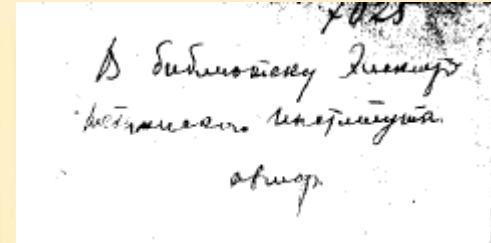 7025
В библиотеку Электро
технического Института
автор